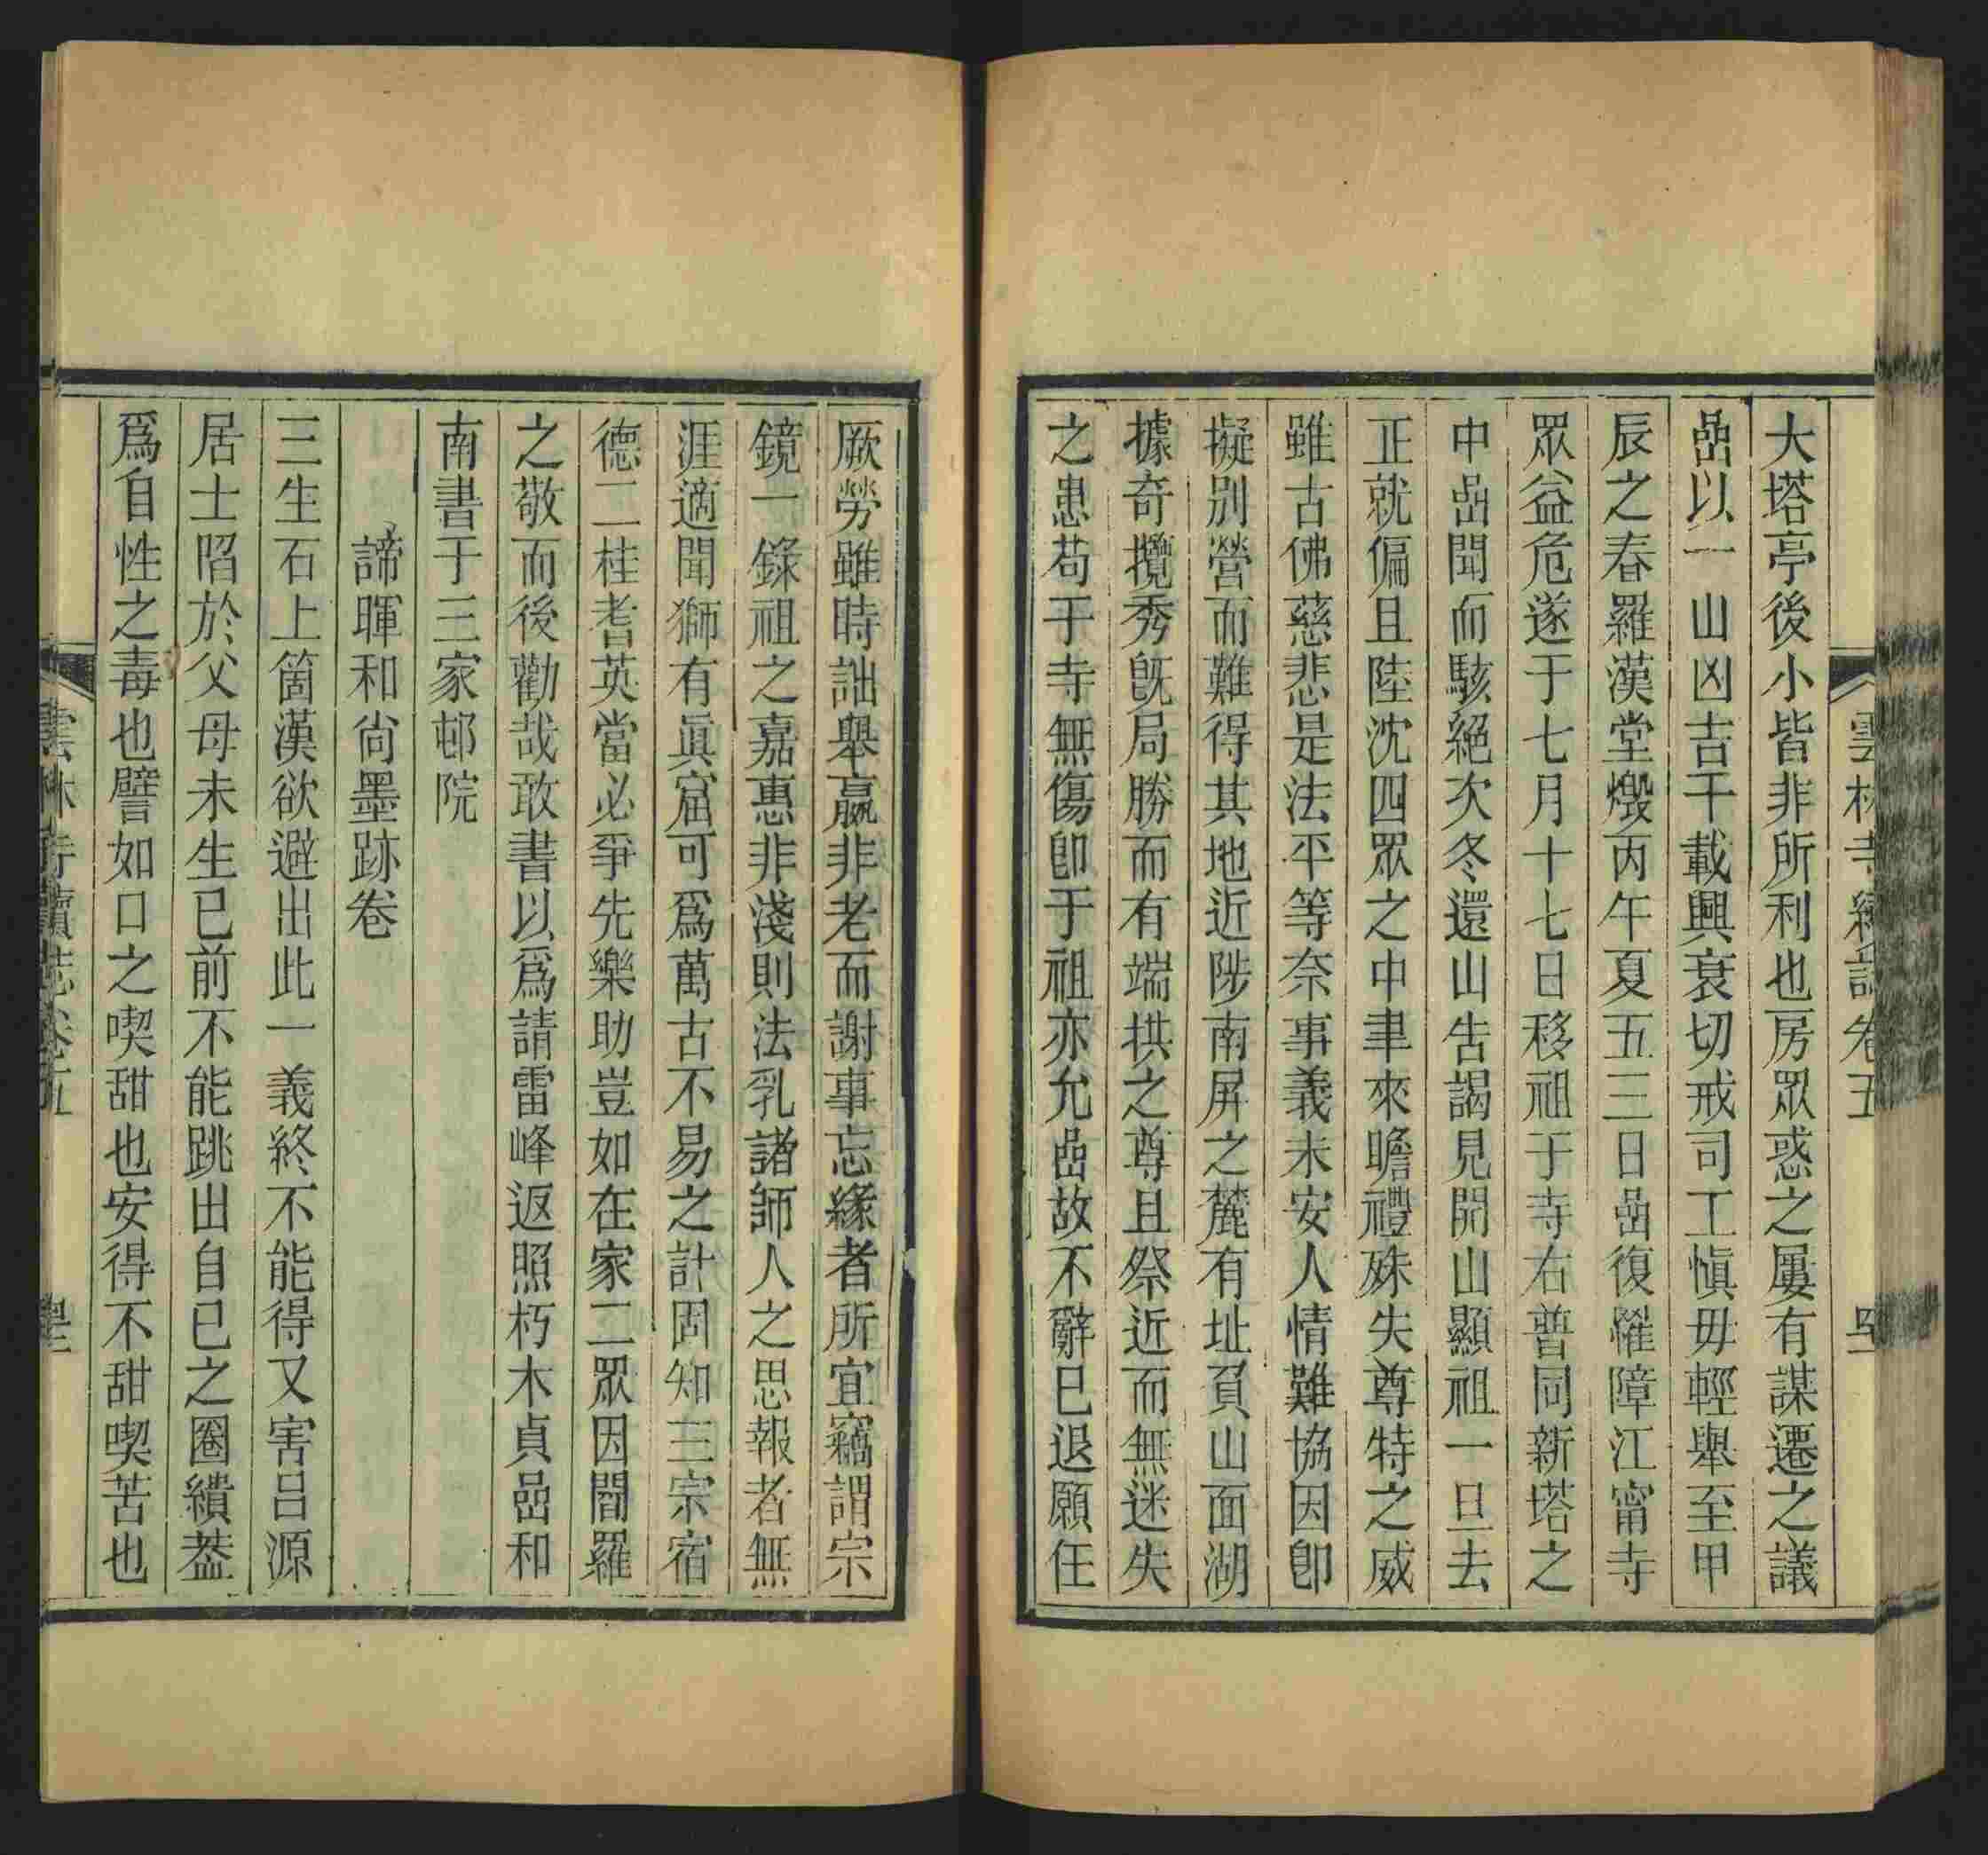 雲林寺續誌卷五
大塔亭後小皆非所利也房眾惑之屢有謀遷之議
嵒以一山凶吉千載興衰切戒司工愼毋輕舉至甲
辰之春羅漢堂燬丙午夏五三日嵒復罹障江甯寺
眾益危遂于七月十七日移祖于寺右普同新塔之
中嵒聞而駭絕次冬還山告謁見開山顯祖一旦去
正就偏且陸沈四眾之中聿來瞻禮殊失尊特之威
雖古佛慈悲是法平等奈事義未安人情難協因卽
擬別營而難得其地近陟南屏之麓有址負山面湖
據奇攬秀旣局勝而有端拱之尊且祭近而無迷失
之患苟于寺無傷卽于祖亦允嵒故不辭已退願任
厥勞雖時詘舉嬴非老而謝事忘緣者所宜竊謂宗
鏡一錄祖之嘉惠非淺則法乳諸師人之思報者無
涯適聞獅有眞窟可爲萬古不易之計固知三宗宿
德二桂耆英當必爭先樂助豈如在家二眾因閻羅
之敬而後勸哉敢書以爲請雷峰返照朽木貞嵒和
南書于三家邨院
諦暉和尙墨跡卷
三生石上箇漢欲避出此一義終不能得又害呂源
居士陷於父母未生已前不能跳出自已之圈繢葢
爲自性之毒也譬如口之喫甜也安得不甜喫苦也
雲林寺續誌卷五